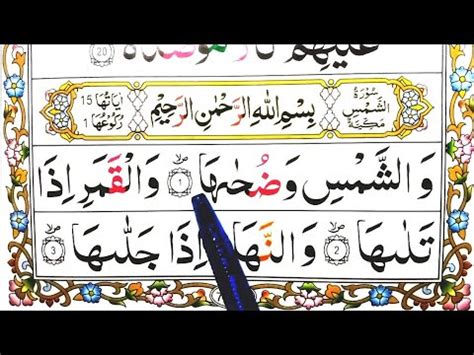 عَلَيْهِمْ نَارٌ مُّؤْصَدَةٌ 20
سُوْرَةُ الشَّمْسِ مَكِّيَّةٌ بِسْمِ اللّٰهِ الرَّحْمٰنِ الرَّحِيْمِ اٰيَاتُهَا 15 رُكُوْعُهَا 1
وَالشَّمْسِ وَضُحٰىهَا ۪ۙ ١ وَالْقَمَرِ اِذَا
تَلٰىهَا ۪ۙ 2 وَالنَّهَا اِذَا جَلّٰىهَا ۪ۙ 3